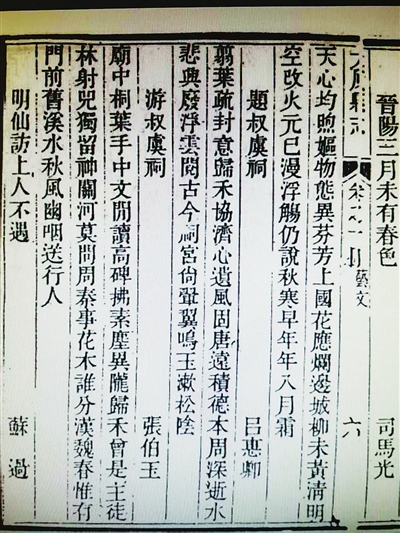 晉陽三月未有春色 司馬光
原縣志 卷之 藝文 六
天心均煦嫗物態異芬芳上國花應爛邊城柳未黃清明
空改火元巳漫浮觴仍說秋寒早年年八月霜
題叔虞祠 呂惠卿
翦葉疏封意歸禾協濟心遺風固唐遠積德本周深逝水
悲興廢浮雲閱古今祠宮尙翬翼鳴玉漱松陰
游叔虞祠 張伯玉
廟中桐葉手中文閒讀高碑拂素塵異隴歸禾曾是主徒
林射兕獨留神關河莫問周秦事花木誰分漢魏春惟有
門前舊溪水秋風幽咽送行人
明仙訪上人不遇 蘇過